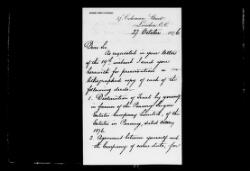 27 Coleman Street
London E.C.
27 October 1896
Dear Sir
As requested in your letter
of the 19th instant I send you
herewith for presentation a
lithographed copy of each of the
following deeds.
1. Declaration of Trust by yourself
in favour of the Penang Sugar
Estates Company Limited, of the
Estates in Penang, dated
1876.
2. Agreement between yourself and
the Company of same date, for